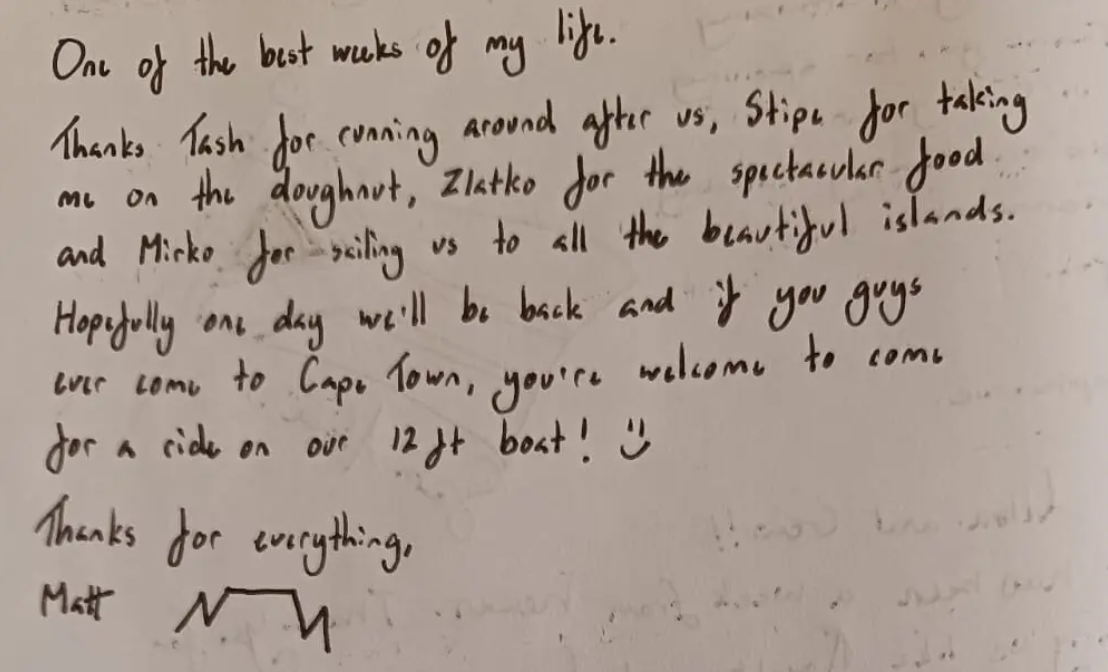 One of the best weeks of my life.
Thanks Tash for running around after us, Stipe for taking
me on the doughnut, Zlatko for the spectacular food
and Mirko for sailing us to all the beautiful islands.
Hopefully one day we'll be back and if you guys
ever come to Cape Town, you're welcome to come
for a ride on our 12 ft boat! :)
Thanks for everything,
Matt